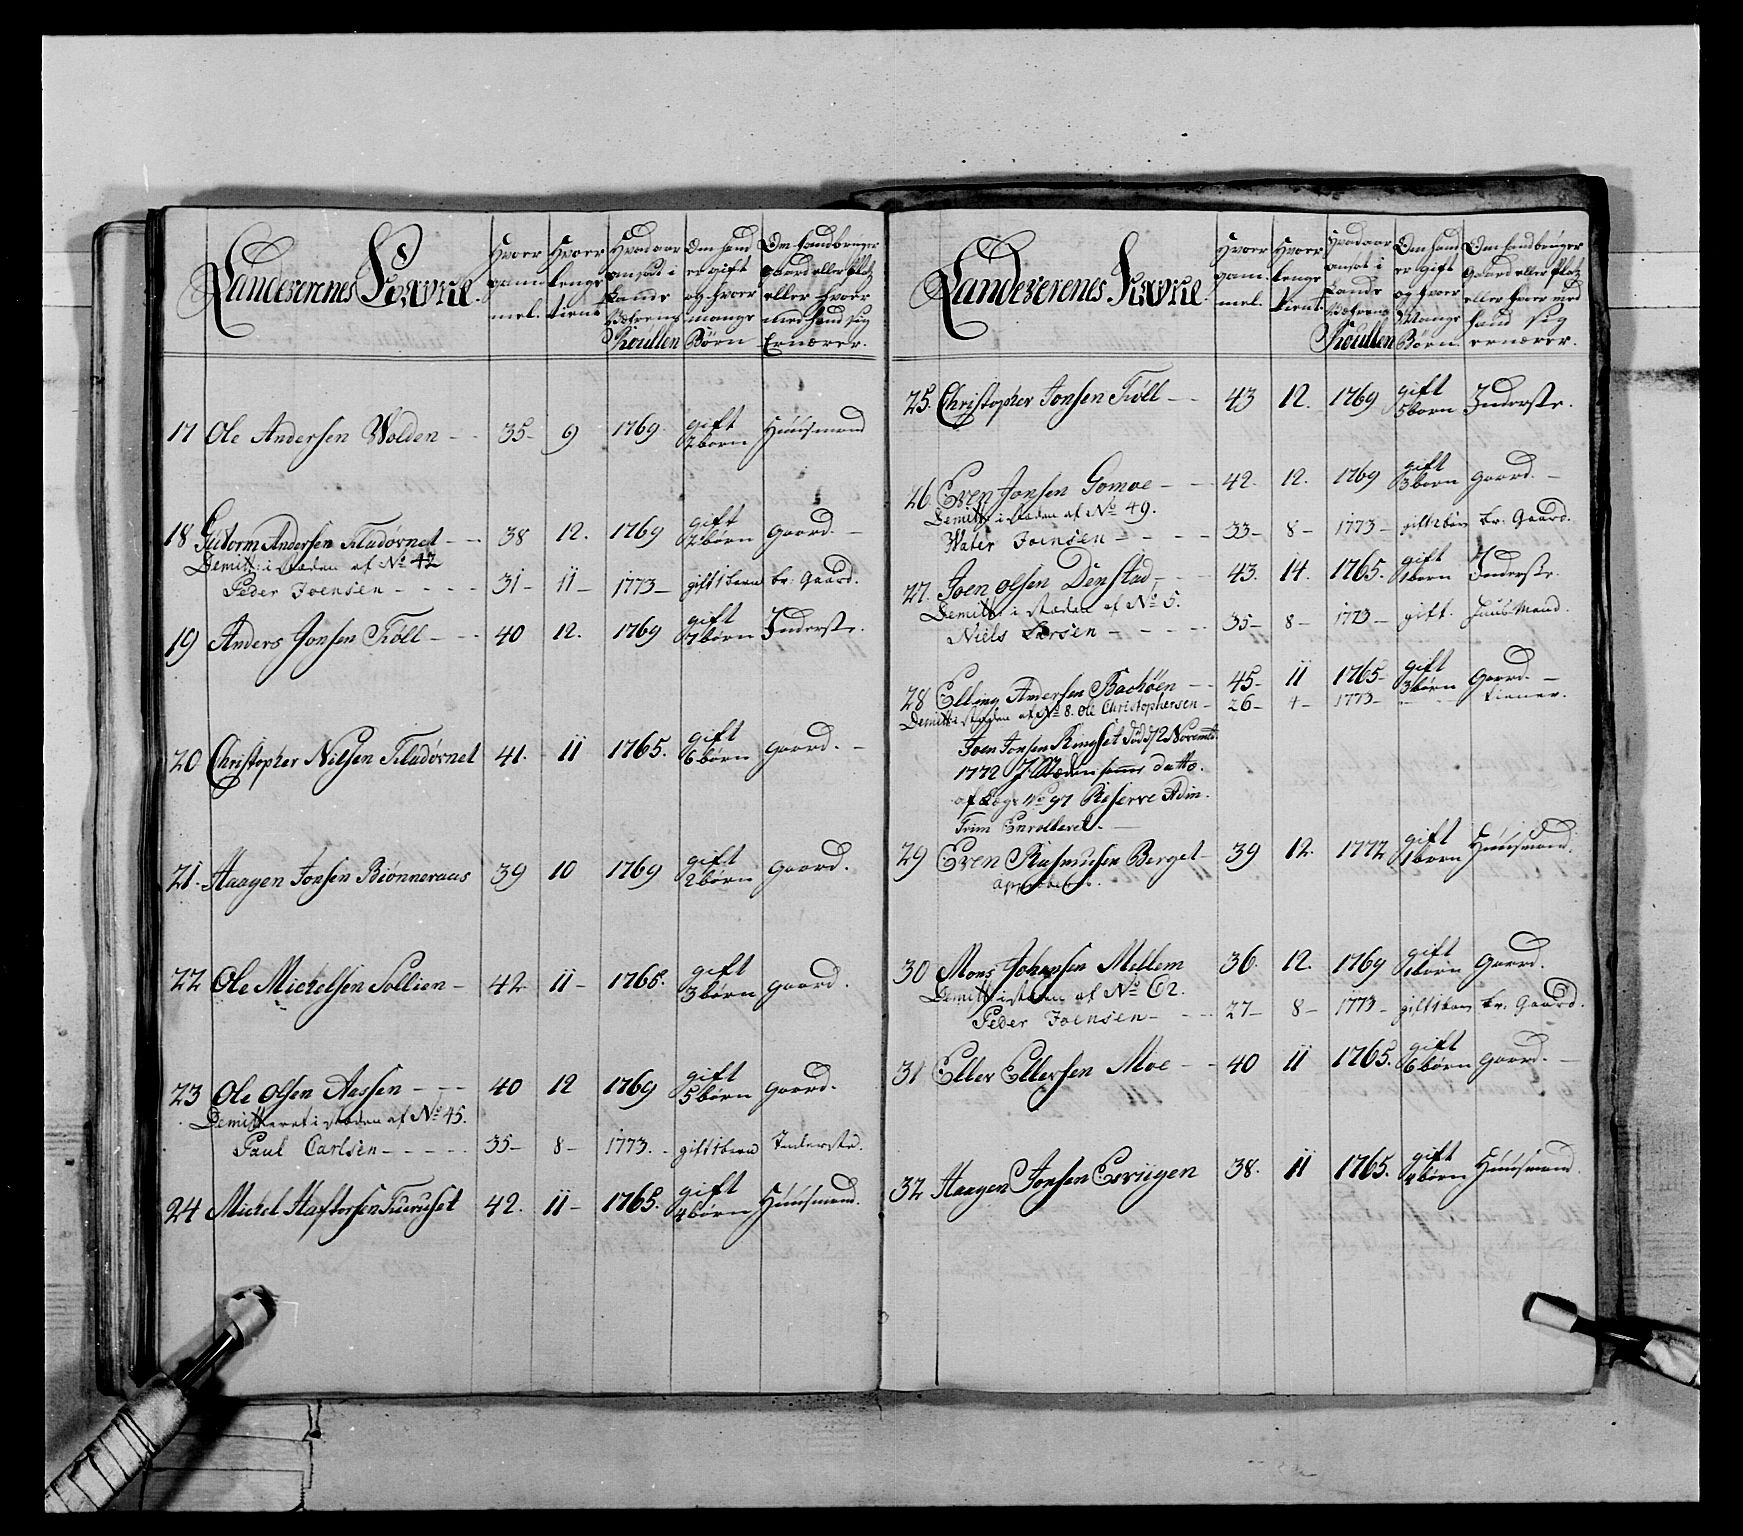 Landeverenes Navne
Hvor gammel.
Hvor lenge tient
Hvad aar ansat i Lande Wæhrens Roullen
Om hand er gift og hvor mange Børn
Om hand bruger gaard eller Platz eller hvor med hand sig Ernærer.
17 Ole Andersen Wolden - - 35 - 9 1769. gift 2 børn Huusmand
18 Guttorm Andersen Fladørnet - - 38 12. 1769 gift 2 børn gaard. -
Demitt: i stæden af No 42
Peder Joensen - - - - 31 - 11 - 1773 - gift 1 barn br: Gaard.
19 Anders Jonsen Tröll - - - 40 12. 1769 gift 7 børn Inderste.
20 Christopher Nilsen Fladørnet 41. - 11 1765. gift 6 børn gaard. -
21. Haagen Jonsen Biönneraas 39 10 1769 gift 2 børn gaard.
22 Ole Mickelsen Sollien - 42 11 - 1765. gift 3 børn gaard.
23 Ole Olsen Aassen - - - 40 12 1769 gift 5 børn gaard.
Demitteret i stæden af No 45.
Paul Carlsen - - - - - 35 - 8 - 1773. - gift 1 barn Inderste.
24 Mickel Haftorsen Furuset 42. 11 - 1765. gift 4 børn Huusmand.
Landeverenes Navne.
Hvor gammel.
Hvor lenge tient
Hvad aar ansat i Lande Wæhrens Roullen
Om hand er gift og hvor Mange Børn.
Om hand bruger Gaard eller Platz eller hvor med hand sig ernærer.
25. Christopher Jonsen Tröll - - 43 12. 1769 gift 5 børn Inderste.
26 Even Jonsen Gomoe - - 42. 12. 1769 gift 3 børn gaard. -
Demitt: i stæden af No 49.
Joensen - - - - 33 - 8 - 1773 - gift 2 børn br. Gaard.
27. Joen Olsen Denstad - - - 43. 14. 1765. gift 1 børn Inderste.
Demitt: i stæden af No 5.
Niels Larsen - - - - 35 - 8 - 1773 - gift. Huus Mand.
28 Elling Andersen Bachöen - - 45 - 11 1765 - gift 3 børn gaard. -
Demitt i stæden af No 8. Ole Christophersen - 26 - 4 - 1773 - tiener.
Joen Jonsen Ringset död d 12 Novembr
1772 I Stæden samme datto.
af Læg: No 97 Reserve Adm.
Trim Enrolleret. -
29 Even Rasmusen Berget - 39 12. 1772 gift 1 børn Huusmand.
30 Mons Johansen Mellem 36. 12. 1769 gift børn Gaard.
Demitt i stæden af No 62.
Peder Joensen - - - 27 - 8 - 1773 - gift 1 barn br. Gaard.
31 Eller Ellersen Moe - - 40 11 1765. gift 6 børn gaard. -
32 Haagen Jonsen 38. 11 1765. gift 4 børn Huusmand.